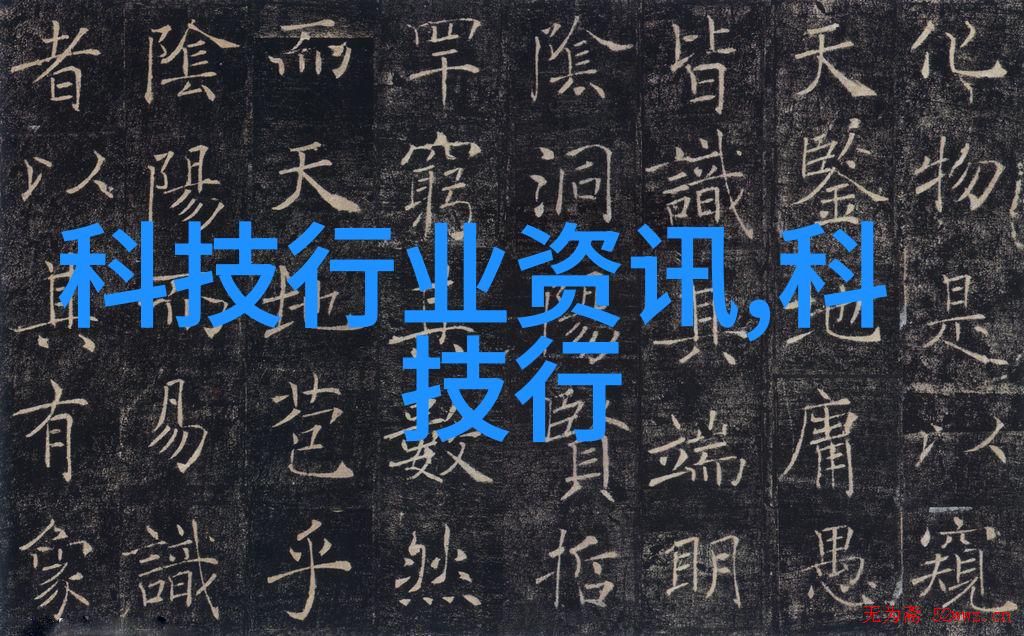 科技行业资讯,科
技行
化物是以窺
天鑒地庸愚
皆識其端明
陰洞陽賢哲
罕窮其數然
而天地苞乎
陰陽而易識
者以其有象
无为斋 52wwz.cn